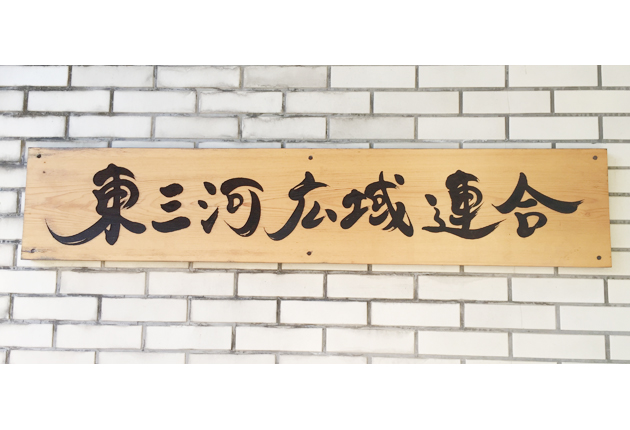 東三河広域連合